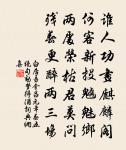 誰人功畫麒麟閣
何客新投魑魅鄉
兩處榮枯君莫問
殘春更醉兩三場
白居易會昌元年春五
絕句勸夢得酒詞典網